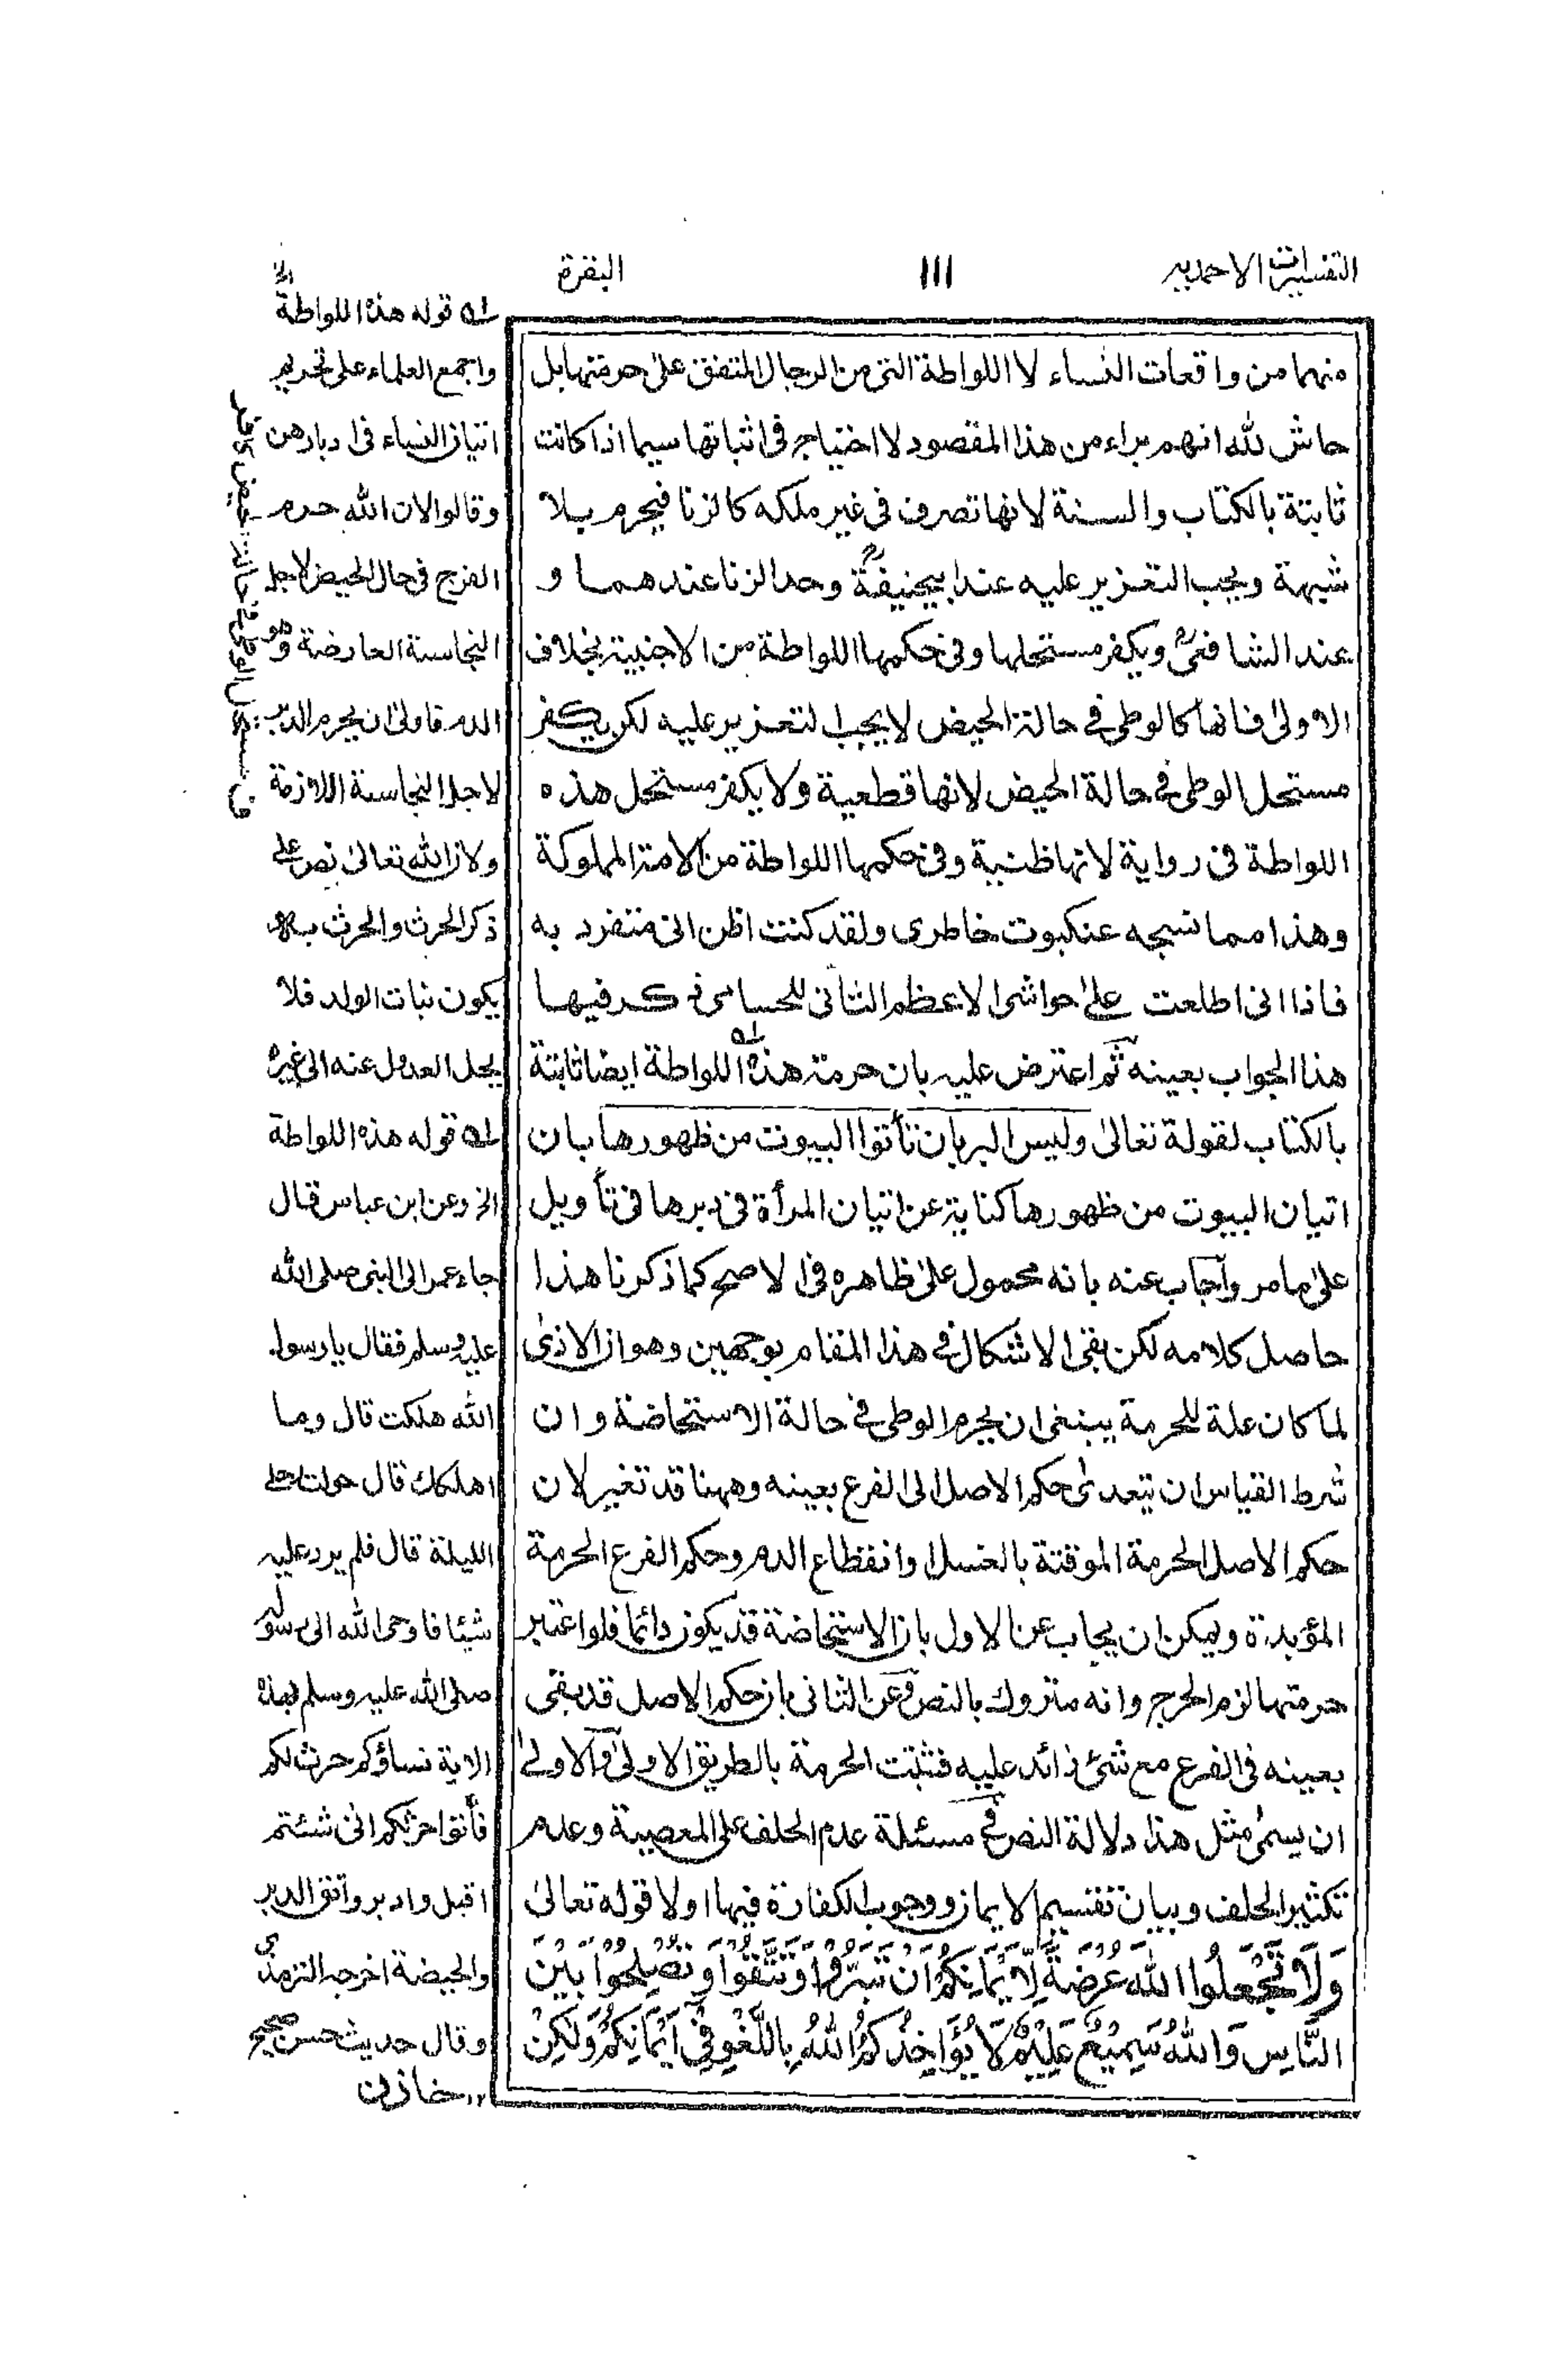 التفسيرات الاحمدية
١١١
البقرة
منهما من واقعات النساء لا اللواطة التى من الرجال المتفق على حرمتها بل
حاش لله انهم براء من هذا المقصود لا احتياج فى اثباتها سيما اذا كانت
ثابتة بالكتاب والسنة لانها تصرف فى غير ملكه كالزنا فيحرم بلا
شبهة ويجب التعزير عليه عند ابيحنيفة رح وحد الزنا عندهما و
عند الشافعى رح ويكفر مستحلها وفى حكمها اللواطة من الاجنبية بخلاف
الاولى فانها كالوطى فى حالة الحيض لا يجب التعزير عليه لكن يكفر
مستحل الوطى فى حالة الحيض لانها قطعية ولا يكفر مستحل هذه
اللواطة فى رواية لانها ظنية وفى حكمها اللواطة من الامة المملوكة
وهذا مما نسجه عنكبوت خاطرى ولقد كنت اظن انى متفرد به
فاذا انى اطلعت على حواشى الاعظم الثانى للحسامى ذكر فيها
هذا الجواب بعينه ثم اعترض عليه بان حرمة هذه اللواطة ايضا ثابتة
بالكتاب لقوله تعالى وليس البر بان تأتوا البيوت من ظهورها بان
اتيان البيوت من ظهورها كناية عن اتيان المرأة فى دبرها فى تأويل
على ما مر وأجاب عنه بانه محمول على ظاهره فى الاصح كما ذكرنا هذا
حاصل كلامه لكن بقى الاشكال فى هذا المقام بوجهين وهو ان الاذى
لما كان علة للحرمة ينبغى ان يحرم الوطى فى حالة الاستحاضة وان
شرط القياس ان يتعدى حكم الاصل الى الفرع بعينه وههنا قد تغير لان
حكم الاصل الحرمة الموقتة بالغسل وانقطاع الدم وحكم الفرع الحرمة
المؤبدة ويمكن ان يجاب عن الاول بان الاستحاضة قد يكون دائما فلو اعتبر
حرمتها لزم الحرج وانه متروك بالنص وعن الثانى بان حكم الاصل قد بقى
بعينه فى الفرع مع شئ زائد عليه فثبتت الحرمة بالطريق الاولى والاولى
ان يسمى مثل هذا دلالة النص فى مسئلة عدم الحلف على المعصية وعدم
تكثير الحلف وبيان تقسيم الايمان ووجوب الكفارة فيها اولا قوله تعالى
وَلَا تَجْعَلُوا اللّٰهَ عُرْضَةً لِّاَيْمَانِكُمْ اَنْ تَبَرُّوْا وَتَتَّقُوْا وَتُصْلِحُوْا بَيْنَ
النَّاسِ وَاللّٰهُ سَمِيْعٌ عَلِيْمٌ لَا يُؤَاخِذُكُمُ اللّٰهُ بِاللَّغْوِ فِىْٓ اَيْمَانِكُمْ وَلٰكِنْ
له قوله هذه اللواطة الخ
واجمع العلماء على تحريم
اتيان النساء فى ادبارهن
وقالوا لان الله حرم
الفرج فى حال الحيض لاجل
النجاسة العارضة وهو
الدم فاولى ان يحرم الدبر
لاجل النجاسة اللازمة
ولان الله تعالى نص على
ذكر الحرث والحرث به
يكون نبات الولد فلا
يحل العدول عنه الى غيره
له قوله هذه اللواطة
الخ وعن ابن عباس قال
جاء عمر الى النبى صلى الله
عليه وسلم فقال يا رسول
الله هلكت قال وما
اهلكك قال حولت رحلى
الليلة قال فلم يرد عليه
شيئا فاوحى الله الى رسوله
صلى الله عليه وسلم بهذه
الاية نساؤكم حرث لكم
فأتوا حرثكم انى شئتم
اقبل وادبر واتق الدبر
والحيضة اخرجه الترمذى
وقال حديث حسن صحيح
خازن